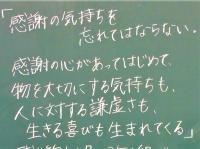 「感謝の気持ちを
忘れてはならない。
感謝の心があってはじめて、
物を大切にする気持ちも、
人に対する謙虚さも、
生きる喜びも生まれてくる」